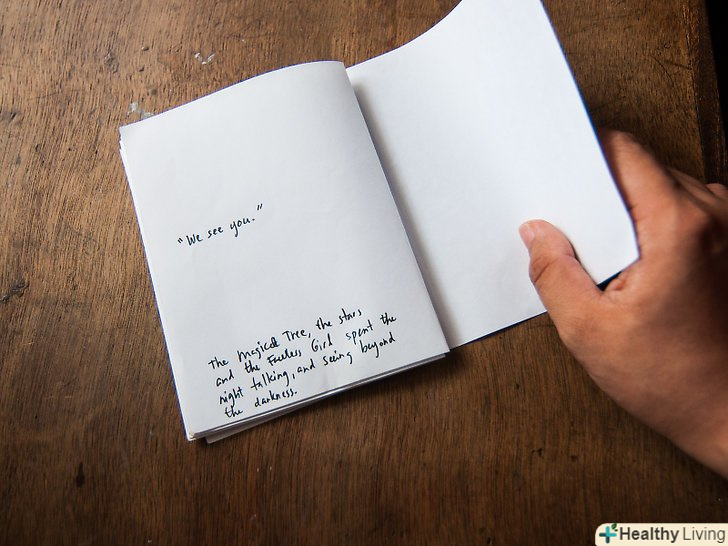 "We see you."
The Magical Tree, the stars
and the Faceless Girl spent the
night talking, and seeing beyond
the darkness.
Healthy Living